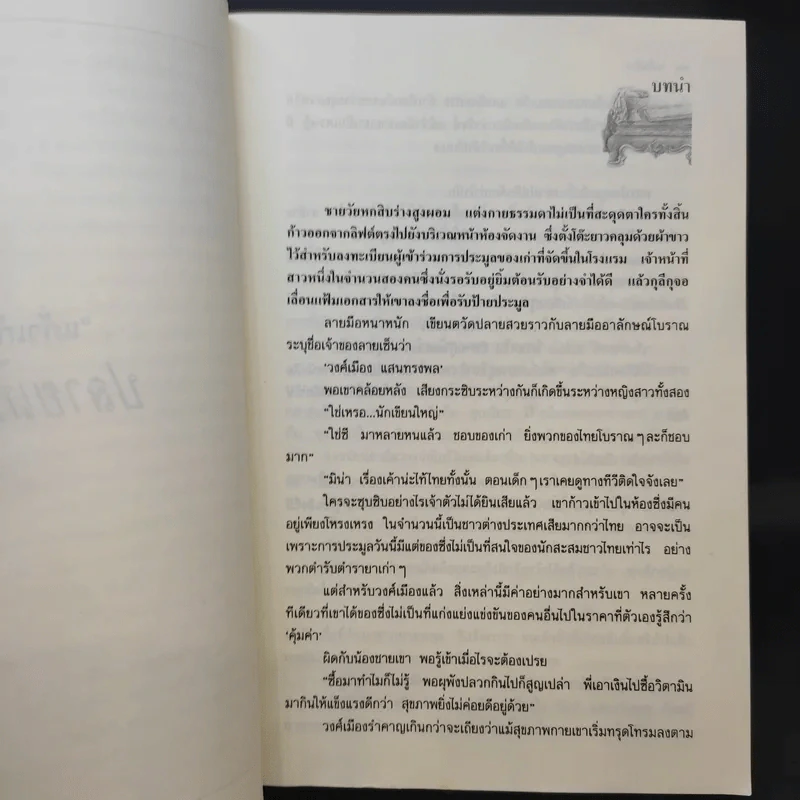 บทนำ
ชายวัยหกสิบร่างสูงผอม แต่งกายธรรมดาไม่เป็นที่สะดุดตาใครทั้งสิ้น
ก้าวออกจากลิฟต์ตรงไปยังบริเวณหน้าห้องจัดงาน ซึ่งตั้งโต๊ะยาวคลุมด้วยผ้าขาว
ไว้สำหรับลงทะเบียนผู้เข้าร่วมการประมูลของเก่าที่จัดขึ้นในโรงแรม เจ้าหน้าที่
สาวหนึ่งในจำนวนสองคนซึ่งนั่งรอรับอยู่ยิ้มต้อนรับอย่างจำได้ดี แล้วกุลีกุจอ
เลื่อนแฟ้มเอกสารให้เขาลงชื่อเพื่อรับป้ายประมูล
ลายมือหนาหนัก เขียนตวัดปลายสวยราวกับลายมืออาลักษณ์โบราณ
ระบุชื่อเจ้าของลายเซ็นว่า
'วงศ์เมือง แสนทรงพล'
พอเขาคล้อยหลัง เสียงกระซิบระหว่างกันก็เกิดขึ้นระหว่างหญิงสาวทั้งสอง
"ใช่เหรอ...นักเขียนใหญ่"
"ใช่ซี มาหลายหนแล้ว ชอบของเก่า ยิ่งพวกของไทยโบราณๆละก็ชอบ
มาก"
"มิน่า เรื่องเค้าน่ะไท้ไทยทั้งนั้น ตอนเด็กๆเราเคยดูทางทีวีติดใจจังเลย"
ใครจะซุบซิบอย่างไรเจ้าตัวไม่ได้ยินเสียแล้ว เขาก้าวเข้าไปในห้องซึ่งมีคน
อยู่เพียงโหรงเหรง ในจำนวนนี้เป็นชาวต่างประเทศเสียมากกว่าไทย อาจจะเป็น
เพราะการประมูลวันนี้มีแต่ของซึ่งไม่เป็นที่สนใจของนักสะสมชาวไทยเท่าไร อย่าง
พวกตำรับตำรายาเก่าๆ
แต่สำหรับวงศ์เมืองแล้ว สิ่งเหล่านี้มีค่าอย่างมากสำหรับเขา หลายครั้ง
ทีเดียวที่เขาได้ของซึ่งไม่เป็นที่แก่งแย่งแข่งขันของคนอื่นไปในราคาที่ตัวเองรู้สึกว่า
'คุ้มค่า'
ผิดกับน้องชายเขา พอรู้เข้าเมื่อไรจะต้องเปรย
"ซื้อมาทำไมก็ไม่รู้ พอผุพังปลวกกินไปก็สูญเปล่า พี่เอาเงินไปซื้อวิตามิน
มากินให้แข็งแรงดีกว่า สุขภาพยิ่งไม่ค่อยดีอยู่ด้วย"
วงศ์เมืองรำคาญเกินกว่าจะเถียงว่าแม้สุขภาพกายเขาเริ่มทรุดโทรมลงตาม